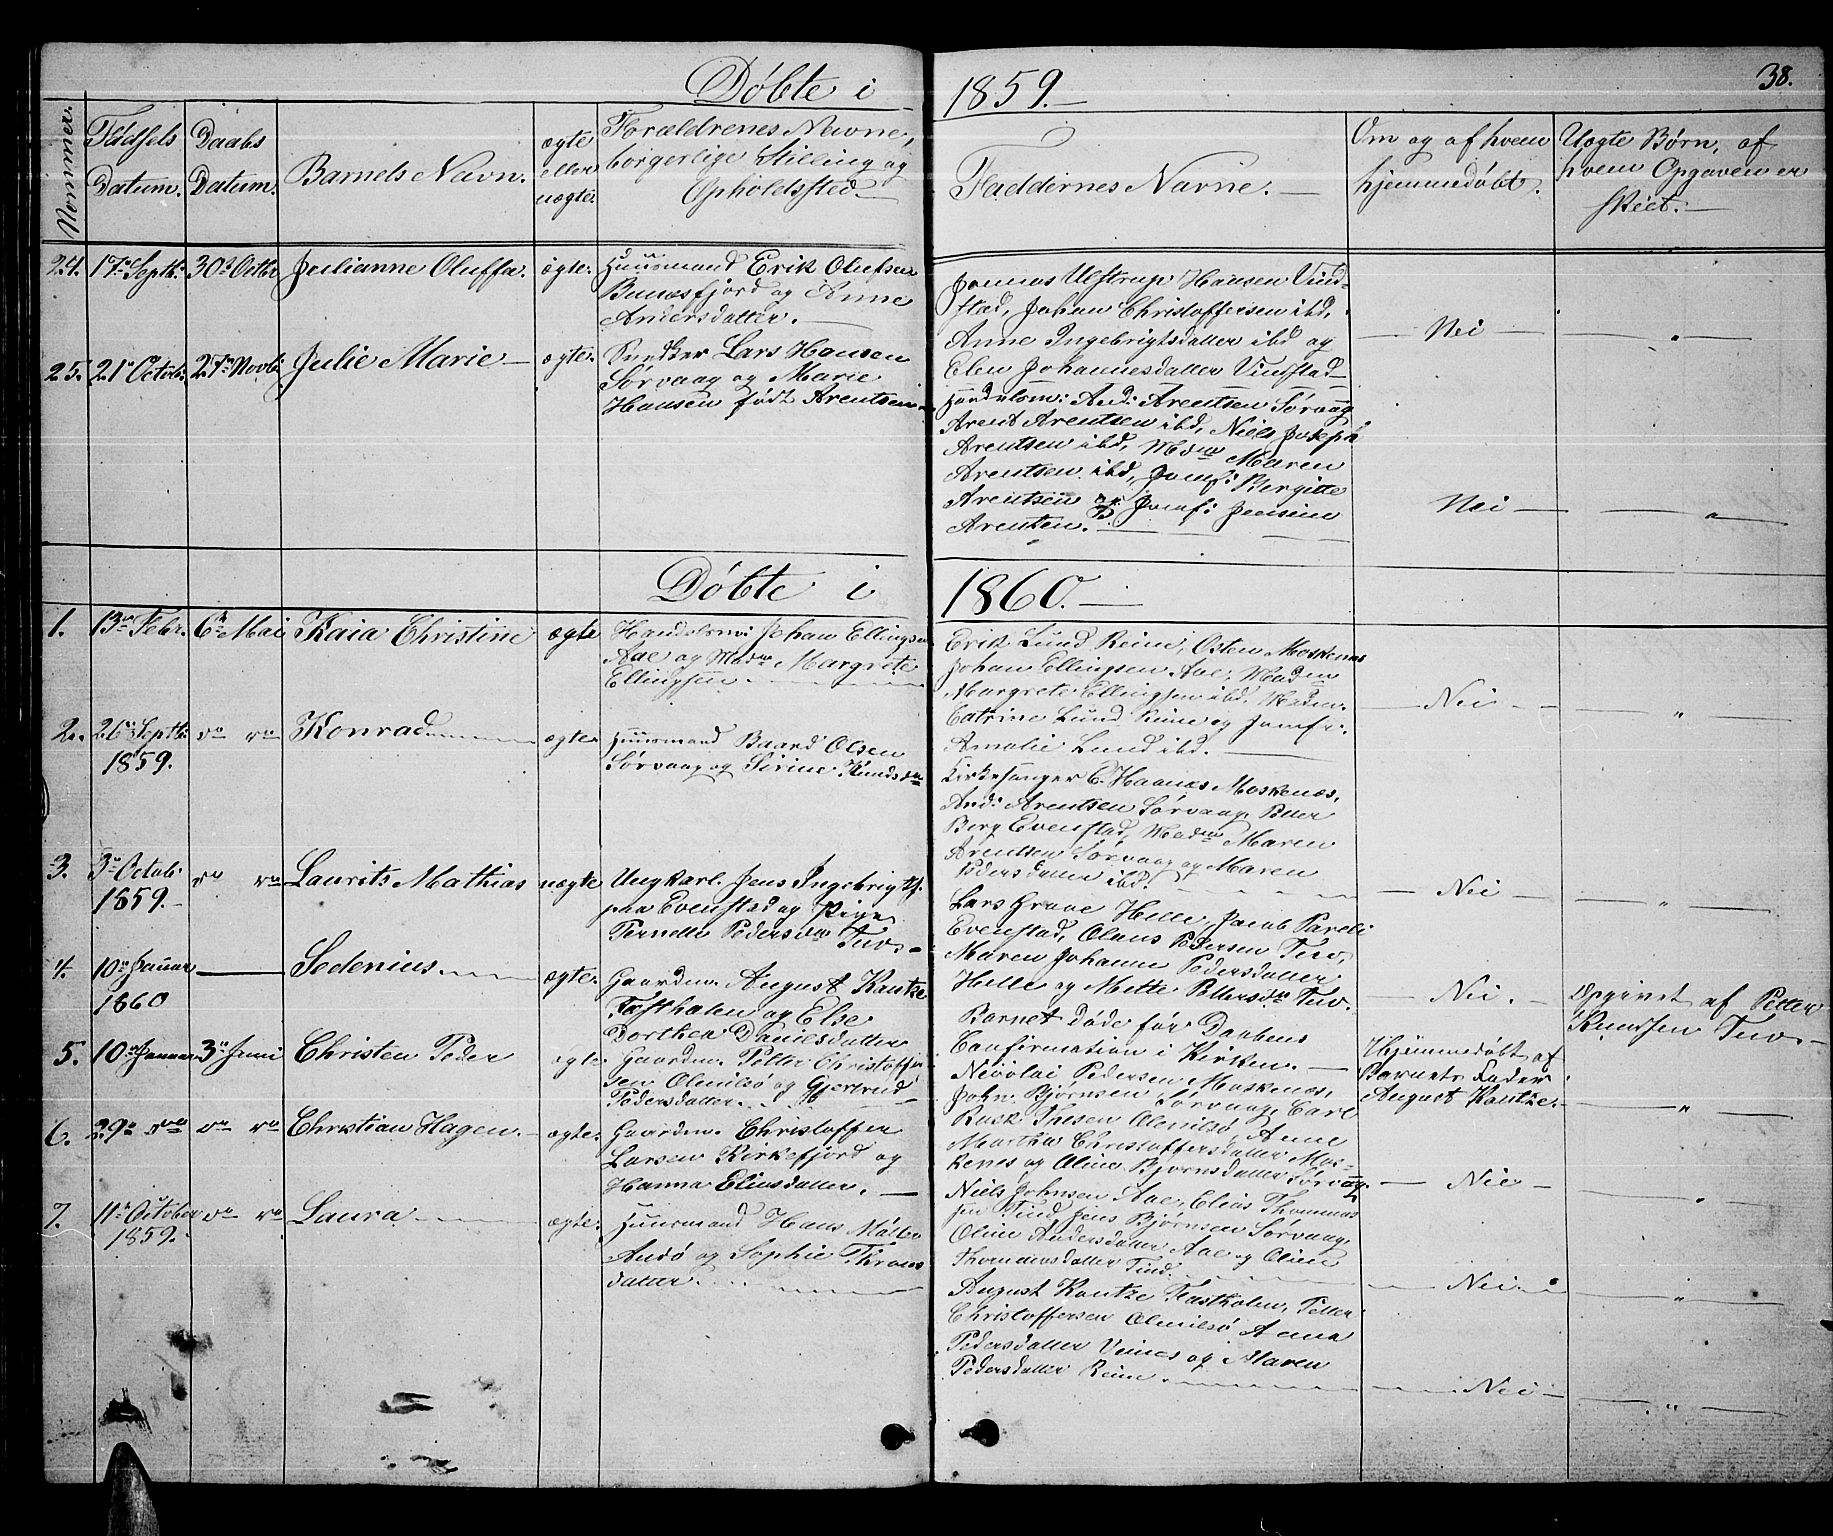 Döbte i 1859.
38.
Nommer.
Födsels Datum.
Daabs Datum.
Barnets Navn.
ægte eller uægte.
Forældrenes Navne, borgerlige Stilling og Opholdssted.
Faddernes Navne.
Om og af hvem hjemmedöbt.
Uægte Børn, af hvem Opgaven er skeet.
24. 17de Septb. 30te Octbr Julianne Oluffa. ægte.
Huusmand Erik Olufsen
Bunæsfjord og Anne
Andersdatter.
Joennas Ulstrup Hansen Vind-
stad, Johan Christoffersen ibd,
Anne Ingebrigtsdatter ibd og
Elen Johannesdatter Vindstad
Nei
25. 21de Octob. 27de Novb. Julie Marie ægte.
Snedker Lars Hansen
Sörvaag og Marie
Hansen födt Arentsen
Handelsm: And: Arentsen Sörvaag
Arent Arentsen ibd, Niels Joseph
Arentsen ibd, Mdm Maren
Arentsen ibd, Jomf: Bergitte
Arentsen og Jomf: Jensine
Arentsen.
Nei
Döbte i 1860.
1. 13de Febr. 6te Mai Kaia Christine ægte
Handelsm: Johan Ellingsen
Aae og Madm Margrete
Ellingsen.
Erik Lund Reine, Osten Moskenæs
Johan Ellingsen Aae, Madm
Margrete Ellingsen ibd, Madm.
Catrine Lund Reine og Jomfr.
Amalie Lund ibd.
Nei
2. 26de Septb. 1859. do do Konrad ægte
Huusmand Baard Olsen
Sörvaag og Sirine Knudsdtr
Kirkesanger C. Haanæs Moskenæs,
And: Arentsen Sörvaag, Peter
Berg Evenstad, Madm Maren
Arentsen Sörvaag og Maren
Pedersdatter ibd.
Nei
3. 3de Octob. 1859. do do Laurits Mathias uægte
Ungkarl. Jens Ingebrigts.
paa Evenstad og Pige
Pernelle Pedersdtr Tuv.
Lars Grave Helle, Jacob Pareli
Evenstad, Olaus Pedersen Tuv,
Maren Johanne Pedersdatter
Helle og Mette Pettersdtr Tuv.
Nei.
Opgivet af Petter
Knudsen Tuv.
4. 10de Januar 1860 Sedenius ægte.
Gaardm. August Kantze
Fastholen og Else
Dorthea Danielsdatter
Barnet döde för Daabens
Confirmation i Kirken.
Hjemmedöbt af
Barnets Fader
August Kantze.
5. 10de Januar 3de Juni Christen Peder ægte
Gaardm. Petter Christoffer
sen Olenilsö og Gjertrud
Pedersdatter
Nicolai Pedersen Moskenæs,
John Bjørnsen Sörvaag, Carl
Rask Ipesen Olenilsö, Anne
Martha Christoffersdatter Mos-
kenes og Oline Bjørnsdatter Sörvaag
Nei
6. 29de do do do Christian Hagen. ægte.
Gaardm. Christoffer
Larsen Kirkefjord og
Hanna Eliasdatter.
Niels Johnsen Aae, Elias Thommas
sen Tind, Jens Bjørnsen Sörvaag,
Oline Andersdatter Aae og Oline
Thommasdatter Tind.
Nei.
7. 11de October 1859. do do Laura ægte.
Huusmand Hans Möller
Andö og Sophie Thrones
datter.
August Kantze Fastholen, Petter
Christoffersen Olenilsö Anna
Pedersdatter Veines og Maren
Pedersdatter Reine.
Nei